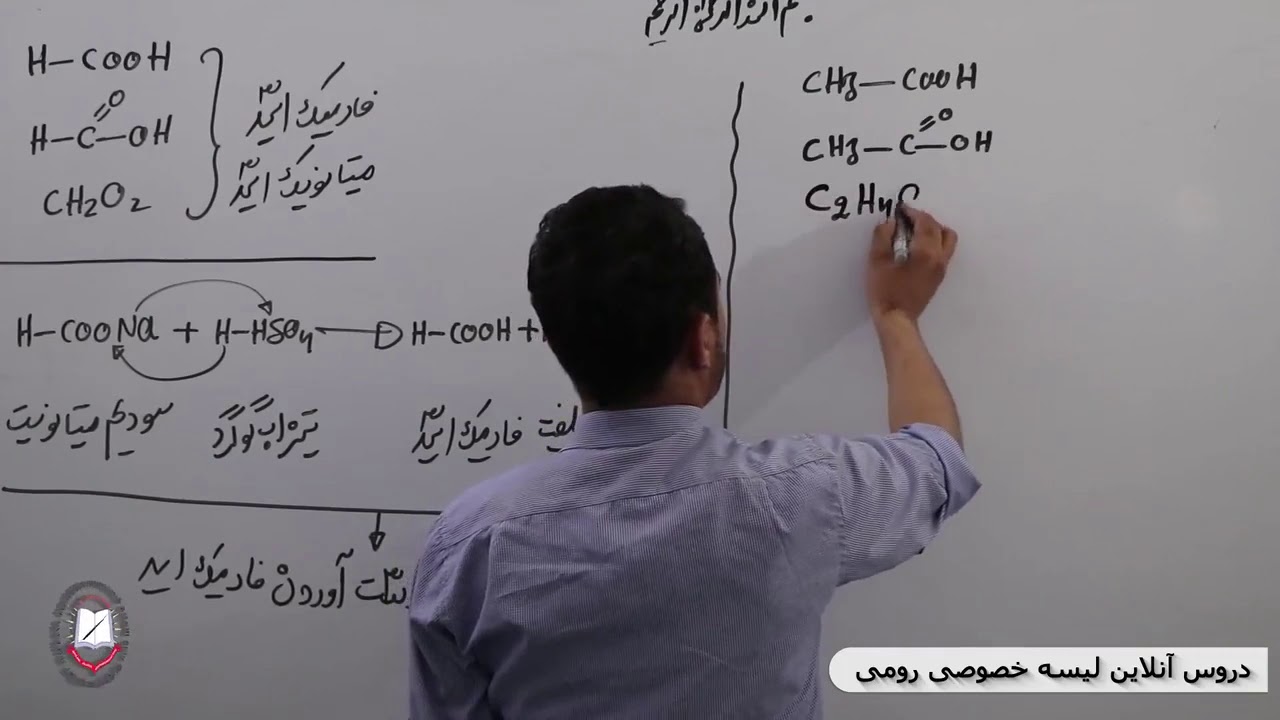 H-COOH
H-C-OH
O
CH2O2
فارمیک اسید
میتانویک اسید
H-COONa + H-HSO4 → H-COOH +
سودیم میتانویت
تیزاب گوگرد
فارمیک اسید
آوردن فارمیک اسید
CH3-COOH
CH3-C-OH
O
C2H4O
دروس آنلاین لیسه خصوصی رومی